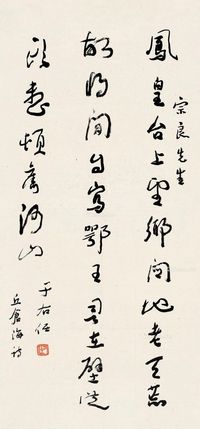 宗良先生
鳳皇台上望鄉關地老天荒
故將閒自寫鄂王詞在壁從
頭整頓舊河山
于右任
丘倉海詩